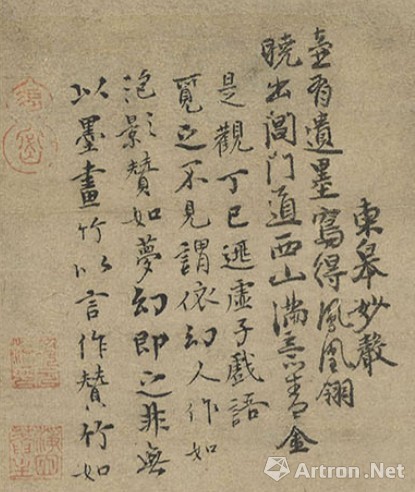 以墨畫竹以言作贊竹如
泡影贊如夢幻即之非無
覓之不見謂依幻人作如
是觀丁巳逃虛子戲語
曉出閶門道西山滿意青金
壺有遺墨寫得鳳凰翎
東皋妙聲
Artron.Net